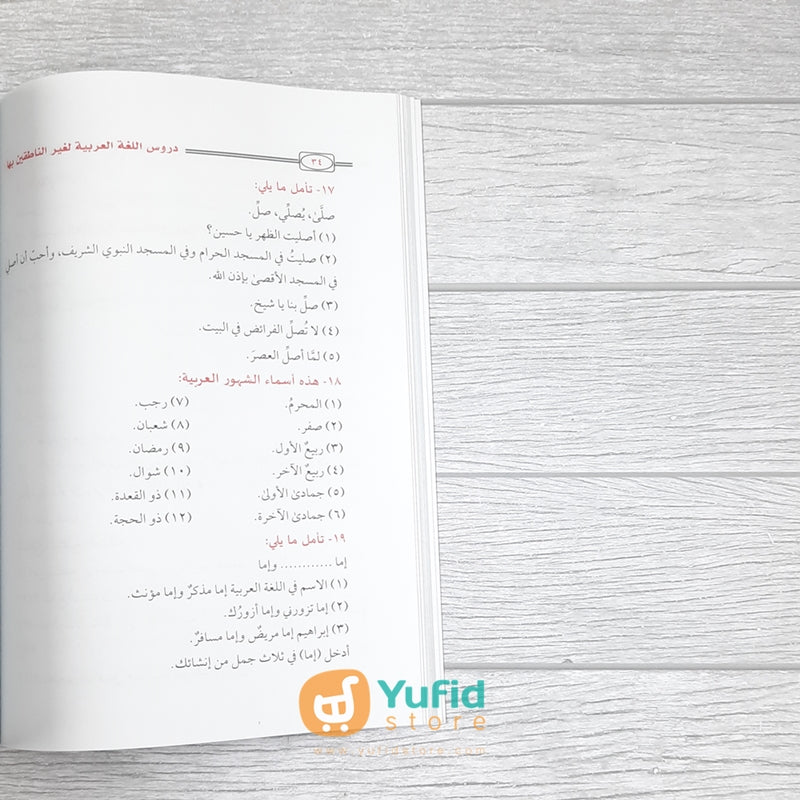 دروس اللغة العربية لغير الناطقين بها
٣٤
١٧- تأمل ما يلي:
صلَّىٰ، يُصلِّي، صلِّ.
(١) أصليت الظهر يا حسين؟
(٢) صليتُ في المسجد الحرام وفي المسجد النبوي الشريف، وأحبّ أن أصلي
في المسجد الأقصىٰ بإذن الله.
(٣) صلِّ بنا يا شيخ.
(٤) لا تُصلِّ الفرائض في البيت.
(٥) لمَّا أصلِّ العصرَ.
١٨- هذه أسماء الشهور العربية:
(١) المحرمُ. (٧) رجب.
(٢) صفر. (٨) شعبان.
(٣) ربيعٌ الأول. (٩) رمضان.
(٤) ربيعٌ الآخر. (١٠) شوال.
(٥) جمادىٰ الأولىٰ. (١١) ذو القعدة.
(٦) جمادىٰ الآخرة. (١٢) ذو الحجة.
١٩- تأمل ما يلي:
إما ............ وإما
(١) الاسم في اللغة العربية إما مذكرٌ وإما مؤنث.
(٢) إما تزورني وإما أزورُك.
(٣) إبراهيم إما مريضٌ وإما مسافرٌ.
أدخل (إما) في ثلاث جمل من إنشائك.
Yufid
store
www.yufidstore.com